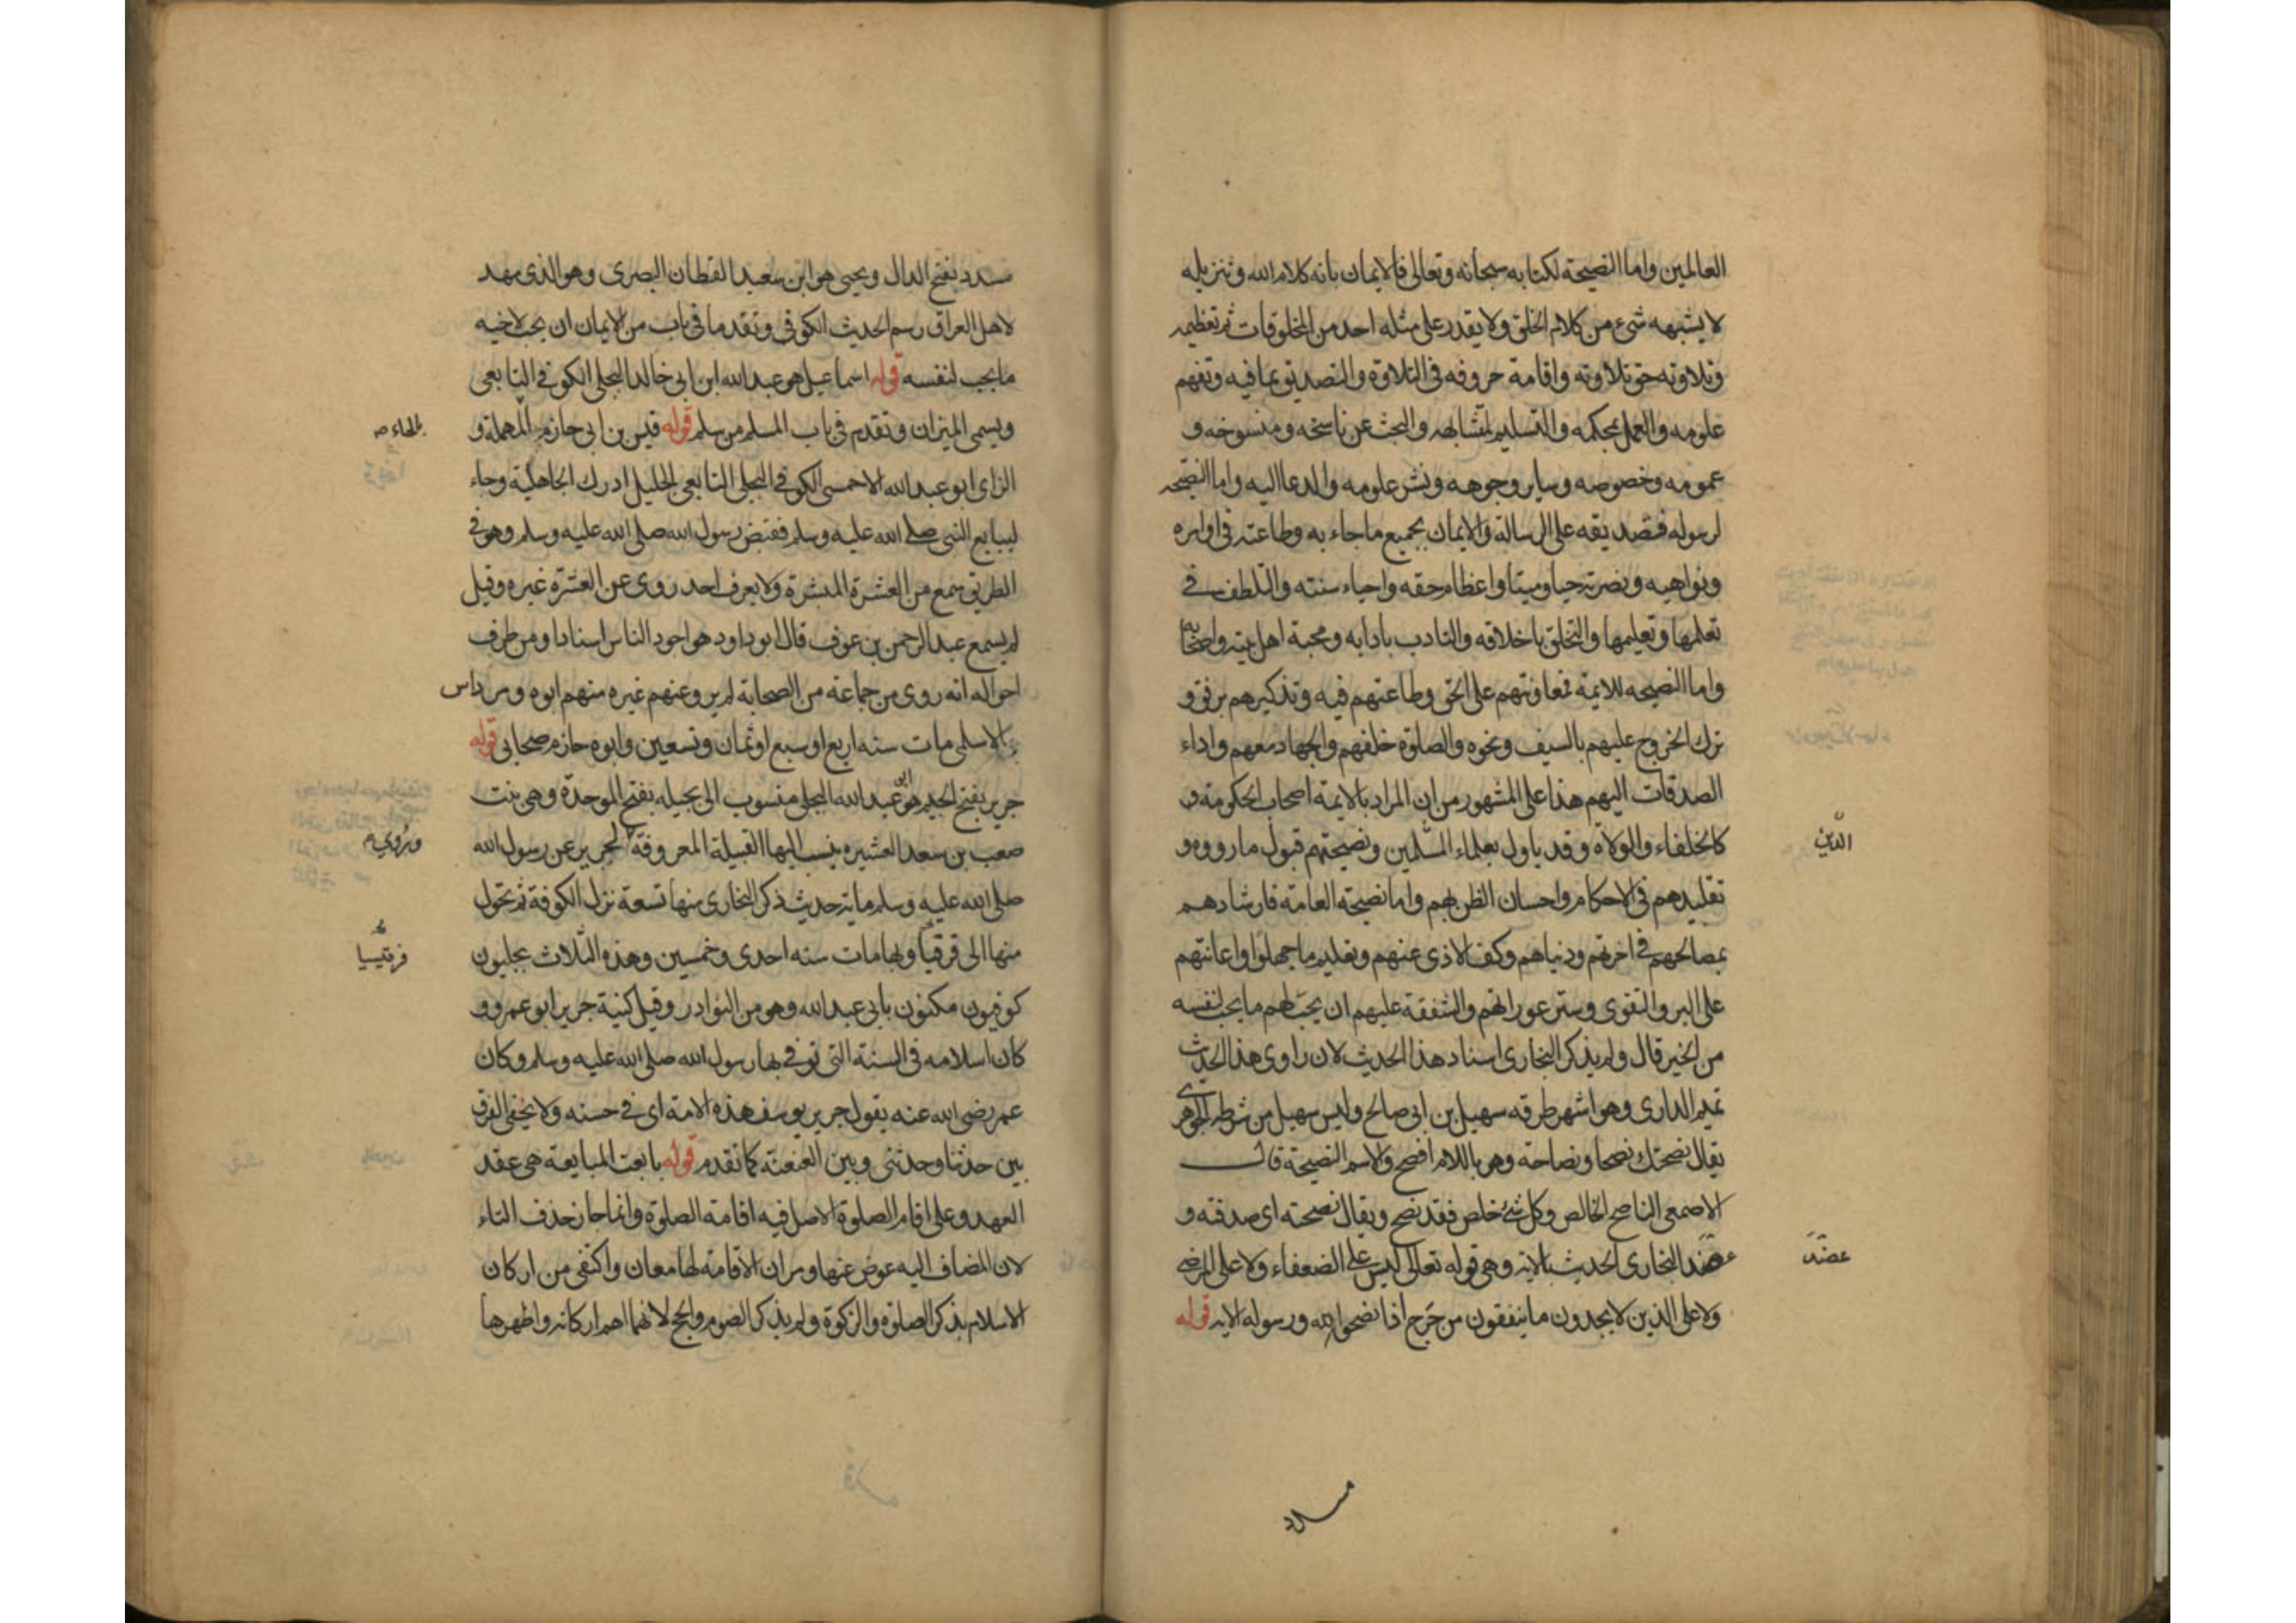 العالمين واما النصيحة لكتابه سبحانه وتعالى فالايمان بانه كلام الله وتنزيله
لا يشبهه شيء من كلام الخلق ولا يقدر على مثله احد من المخلوقات ثم تعظيمه
وتلاوته حق تلاوته واقامة حروفه في التلاوة والتصديق بما فيه وتفهم
علومه والعمل بمحكمه والتسليم لمتشابهه والبحث عن ناسخه ومنسوخه و
عمومه وخصوصه وساير وجوهه ونشر علومه والدعا اليه واما النصيحة
لرسوله فتصديقه على الرسالة والايمان بجميع ما جاء به وطاعته في اوامره
ونواهيه ونصرته حيا وميتا واعظام حقه واحياء سنته والتلطف في
تعلمها وتعليمها والتخلق باخلاقه والتادب بادابه ومحبة اهل بيته واصحابه
واما النصيحه للايمة فمعاونتهم على الحق وطاعتهم فيه وتذكيرهم برفق و
ترك الخروج عليهم بالسيف ونحوه والصلوة خلفهم والجهاد معهم واداء
الصدقات اليهم هذا على المشهور من ان المراد بالايمة اصحاب الحكومة و
كالخلفاء والولاة وقد ياول بعلماء المسلمين ونصيحتهم قبول ما رووه و
الدين
تقليدهم في الاحكام واحسان الظن بهم واما نصيحة العامة فارشادهم
بمصالحهم في اخرتهم ودنياهم وكف الاذى عنهم وتعليم ما جهلوا واعانتهم
على البر والتقوى وستر عوراتهم والشفقة عليهم ان يحب لهم ما يحب لنفسه
من الخير قال ولم يذكر البخارى اسناد هذا الحديث لان راوى هذا الحديث
تميم الدارى وهو اشهر طرقه سهيل بن ابى صالح وليس سهيل من شرطه الجوهرى
يقال نصحتك نصحا ونصاحة وهو باللام افصح والاسم النصيحة قال
الاصمعى الناصح الخالص وكل شئ خلص فقد نصح ويقال نصحته اى صدقته و
عضد البخارى الحديث بالاية وهى قوله تعالى ليس على الضعفاء ولا على المرضى
عضد
ولا على الذين لا يجدون ما ينفقون من حرج اذا نصحوا لله ورسوله الاية قوله
مسدد
مسدد بفتح الدال ويحيى هو ابن سعيد القطان البصرى وهو الذى مهد
لاهل العراق رسم الحديث الكوفى وتقدما فى باب من الايمان ان يحب لاخيه
ما يحب لنفسه قوله اسماعيل هو عبد الله ابن ابى خالد البجلى الكوفى التابعى
ويسمى الميزان وتقدم فى باب المسلم من سلم قوله قيس بن ابى حازم المهملة و
بالحاء
الزاى ابو عبد الله الاحمسى الكوفى البجلى التابعى الجليل ادرك الجاهلية وجاء
ليبايع النبى صلى الله عليه وسلم فقبض رسول الله صلى الله عليه وسلم وهو فى
الطريق سمع من العشرة المبشرة ولا يعرف احد روى عن العشرة غيره وقيل
لم يسمع عبد الرحمن بن عوف قال ابو داود هو اجود الناس اسنادا ومن طرف
احواله انه روى من جماعة من الصحابة لم يرو عنهم غيره منهم ابوه ومرداس
الاسلمى مات سنه اربع او سبع او ثمان وتسعين وابوه حازم صحابى قوله
جرير بفتح الجيم هو ابو عبد الله البجلى منسوب الى بجيله بفتح الموحدة وهى بنت
صعب بن سعد العشيره ينسب اليها القبيلة المعروفة لجرير عن رسول الله
وروي
صلى الله عليه وسلم ماية حديث ذكر البخارى منها تسعة نزل الكوفة ثم تحول
منها الى قرقيا وبها مات سنه احدى وخمسين وهذه الثلاث بجليون
قرقيسيا
كوفيون مكنون بابى عبد الله وهو من النوادر وقيل كنية جرير ابو عمرو و
كان اسلامه فى السنة التى توفى بها رسول الله صلى الله عليه وسلم وكان
عمر رضى الله عنه يقول جرير يوسف هذه الامة اى فى حسنه ولا يخفى الفرق
بين حدثنا وحدثنى وبين العنعنة كما تقدم قوله بايعت المبايعة هى عقد
العهد وعلى اقام الصلوة الاصل فيه اقامة الصلوة وانما جاز حذف التاء
لان المضاف اليه عوض عنها ومر ان الاقامة لها معان واكتفى من اركان
الاسلام بذكر الصلوة والزكوة ولم يذكر الصوم والحج لانهما اهم اركانه واظهرها